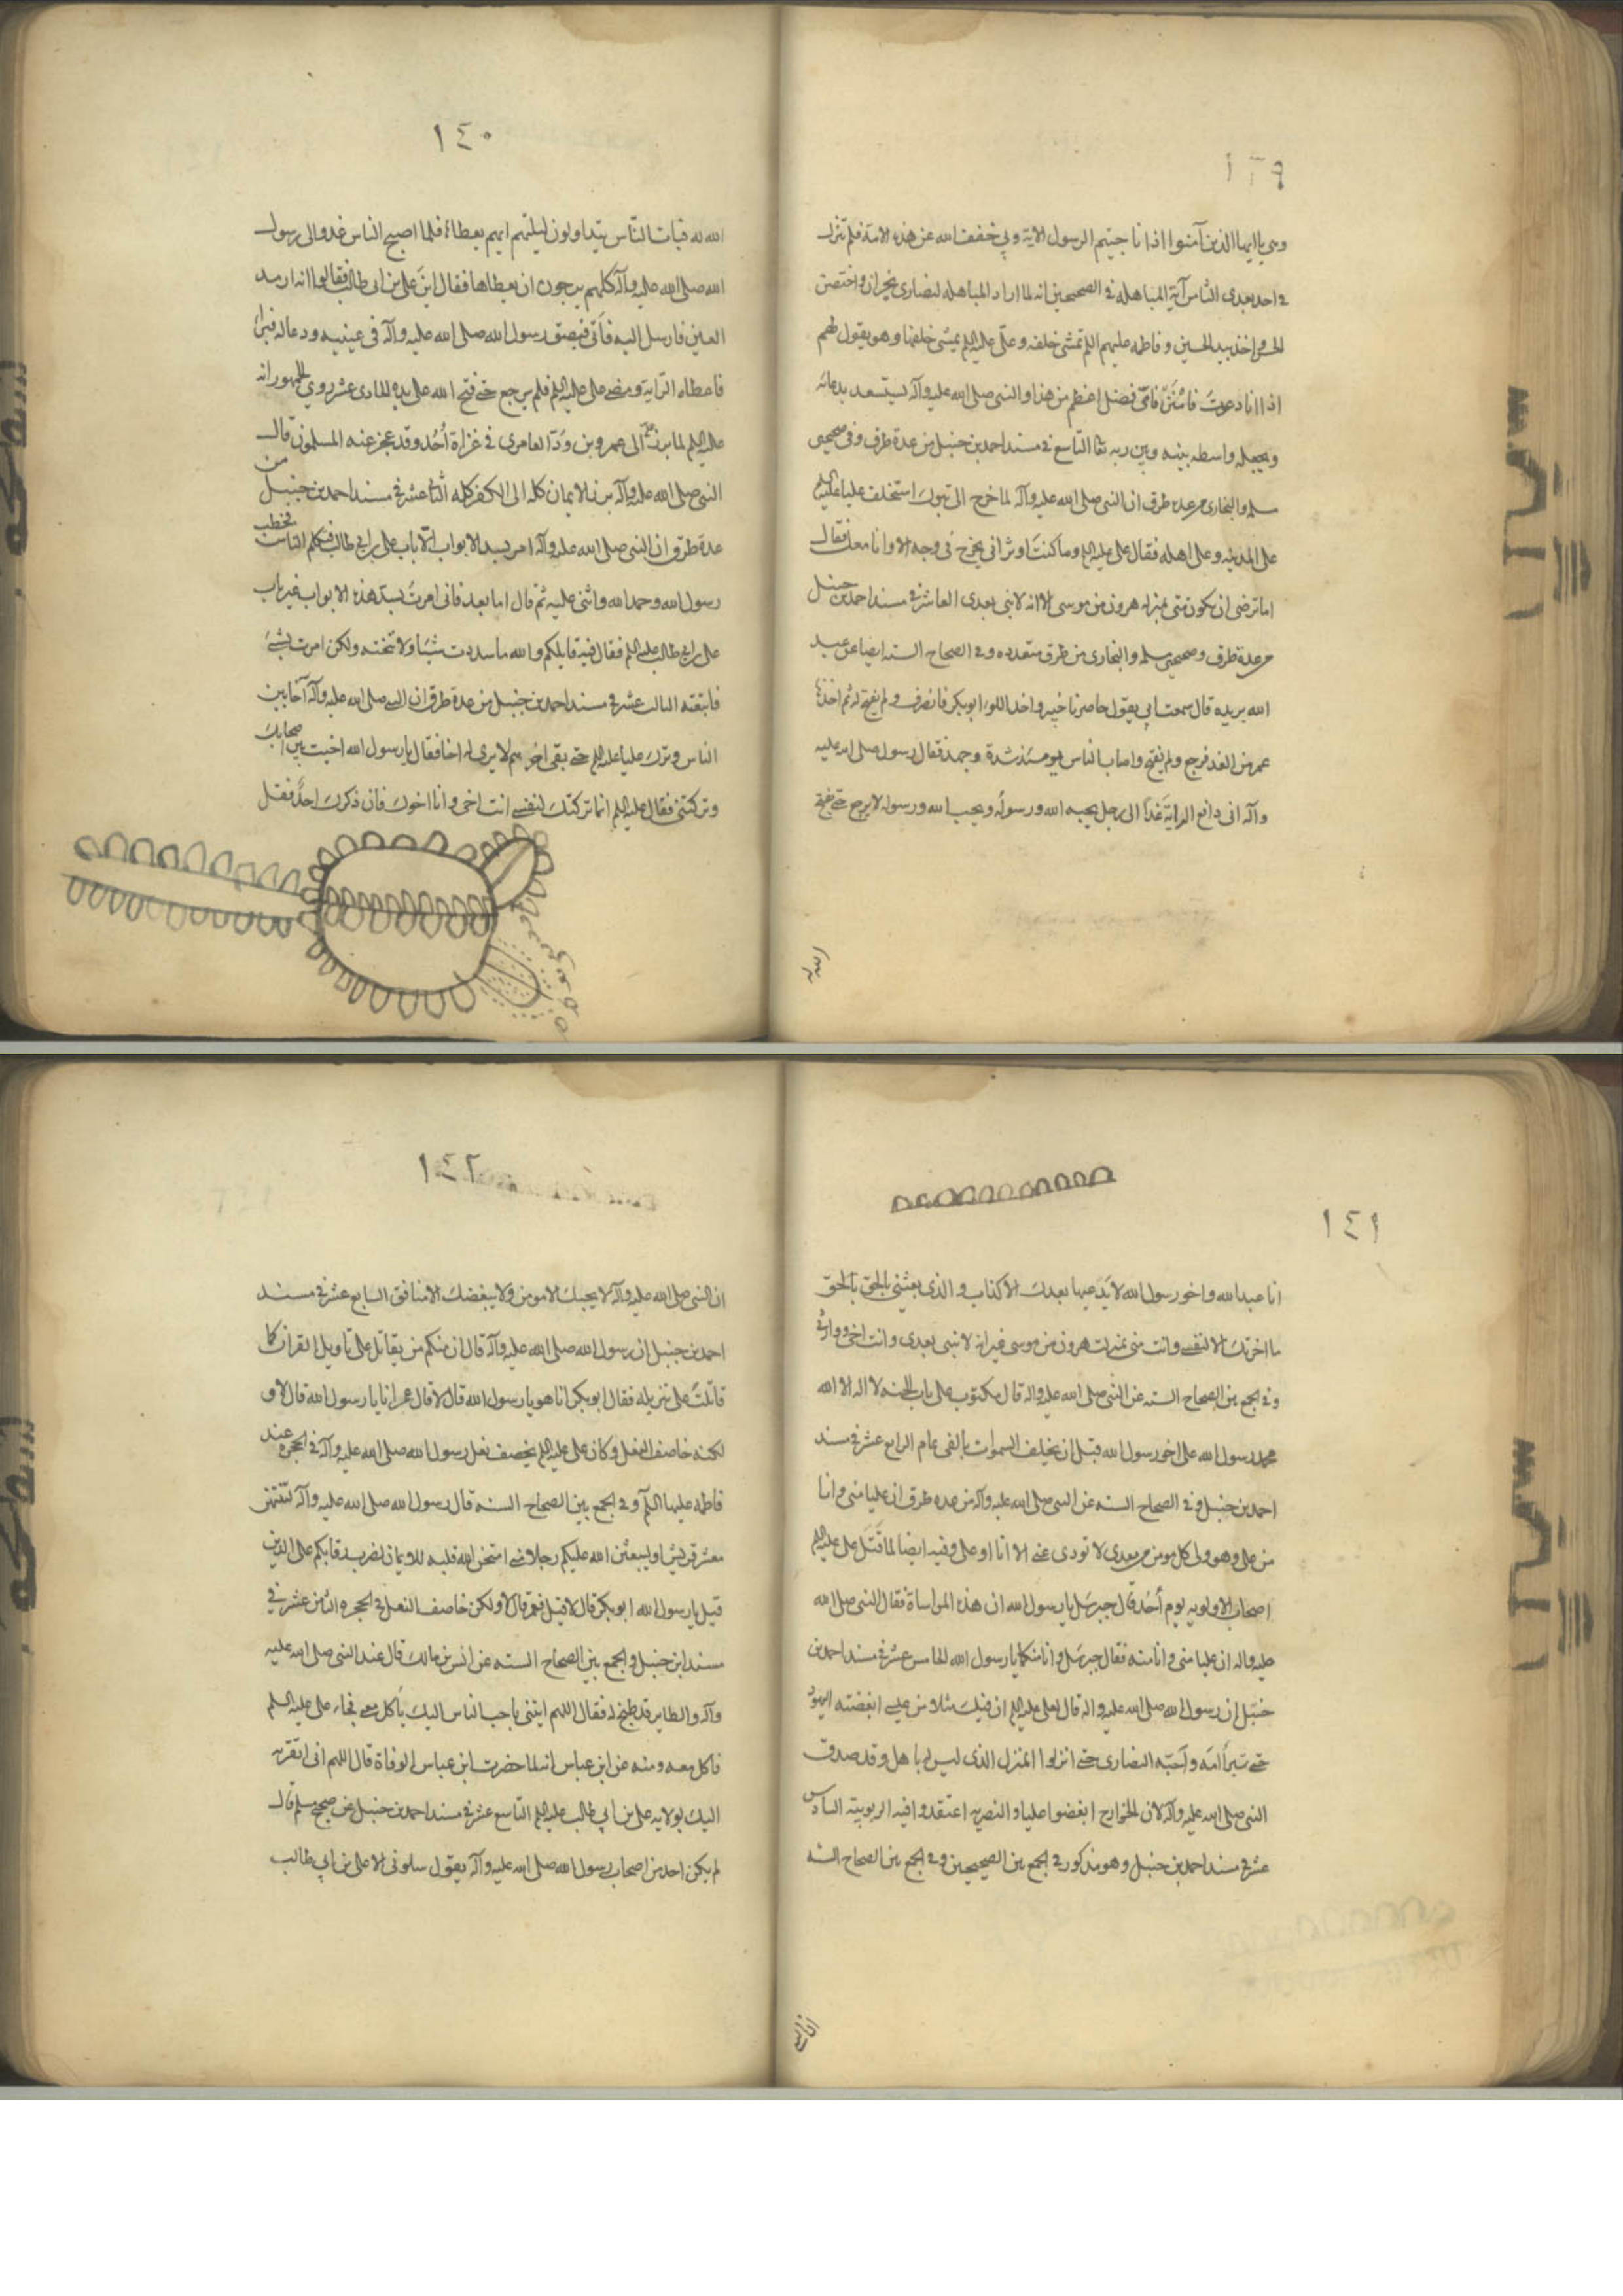 ١٣٩
وهى ياايها الذين آمنوا اذا ناجيتم الرسول الاية وبي خفف الله عن هذه الامة فلم تنزل
في احد بعدى الثامن آية المباهله في الصحيحين انه لما اراد المباهله لنصارى نجران واحتضن
الحسن واخذ بيد الحسين وفاطمه عليهم السلم تمشى خلفه وعلى عليه السلم يمشى خلفها وهو يقول لهم
اذا انا دعوت فامنوا فاى فضل اعظم من هذا والنبى صلى الله عليه وآله يستسعد بدعائه
ويجعله واسطه بينه وبين ربه تعا التاسع في مسند احمد بن حنبل من عدة طرق وفى صحيحى
مسلم والبخارى من عدة طرق ان النبى صلى الله عليه وآله لما خرج الى تبوك استخلف عليا عليه السلم
على المدينه وعلى اهله فقال على عليه السلم وما كنت اوثر انى تخرج فى وجه الا وانا معك فقال
اما ترضى ان تكون منى بمنزله هرون من موسى الا انه لا نبى بعدى العاشر في مسند احمد بن حنبل
من عدة طرق وصحيحى مسلم والبخارى من طرق متعدده وفي الصحاح السته ايضا عن عبد
الله بريده قال سمعت ابي يقول حاصرنا خيبر واخذ اللواء ابو بكر فانصرف ولم يفتح له ثم اخذها
عمر من الغد فرجع ولم يفتح واصاب الناس يومئذ شدة وجهد فقال رسول صلى الله عليه
وآله انى دافع الراية غداً الى رجل يحبه الله ورسوله ويحب الله ورسوله لا يرجع حتى يفتح
الله له
١٤٠
الله له فبات الناس يتداولون ليلتهم ايهم يعطاها فلما اصبح الناس غدوا الى رسول
الله صلى الله عليه وآله كلهم يرجون ان يعطاها فقال اين على بن ابى طالب فقالوا انه ارمد
العين فارسل اليه فاتى فبصق رسول الله صلى الله عليه وآله فى عينيه ودعا له فبرأ
فاعطاه الراية ومضى على عليه السلم فلم يرجع حتى فتح الله على يديه الحادى عشر روي الجمهور انه
عليه السلم لما برز على الى عمرو بن ودّ العامرى في غزاة أُحُد وقد عجز عنه المسلمون قال
النبى صلى الله عليه وآله برز الايمان كله الى الكفر كله الثانى عشر في مسند احمد بن حنبل من
عدة طرق ان النبى صلى الله عليه وآله امر بسد الابواب الا باب على بن ابى طالب فتكلم الناس فخطب
رسول الله وحمد الله واثنى عليه ثم قال اما بعد فانى امرت بسد هذه الابواب غير باب
على بن ابى طالب عليه السلم فقال فيه قايلكم والله ما سددت شيئا ولا فتحته ولكن امرت بشئ
فاتبعته الثالث عشر في مسند احمد بن حنبل من عدة طرق ان النبى صلى الله عليه وآله آخا بين
الناس وترك عليا عليه السلم حتى بقى اخرهم لا يرى له اخا فقال يا رسول الله اخيت بين اصحابك
وتركتنى فقال عليه السلم انما تركتك لنفسى انت اخى وانا اخوك فان ذكرك احد فقل
١٤١
انا عبد الله واخو رسول الله لا يدعيها بعدك الا كذاب والذى بعثنى بالحق بالحق
ما اخرتك الا لنفسى وانت منى بمنزلت هرون من موسى غير انه لا نبى بعدى وانت اخى ووارثى
وفي الجمع بين الصحاح السته عن النبى صلى الله عليه واله قال مكتوب على باب الجنه لا اله الا الله
محمد رسول الله على اخو رسول الله قبل ان يخلف السموات بالفى عام الرابع عشر في مسند
احمد بن حنبل وفي الصحاح السته عن النبى صلى الله عليه وآله من عده طرق ان عليا منى وانا
من على وهو ولى كل مومن من بعدى لا تودى عنى الا انا او على وفيه ايضا لما قَتَلَ على عليه السلم
اصحاب الالويه يوم أُحد قال جبرئيل يا رسول الله ان هذه المواساة فقال النبى صلى الله
عليه واله ان عليا منى وانا منه فقال جبرئيل وانا منكما يا رسول الله الخامس عشر في مسند احمد بن
حنبل ان رسول الله صلى الله عليه واله قال لعلى عليه السلم ان فيك مثلا من عيسى ابغضته اليهود
حتى تبرا امّه واحبّه النصارى حتى انزلوا المنزل الذى ليس له باهل وقد صدق
النبى صلى الله عليه وآله لان الخوارج ابغضوا عليا والنصريه اعتقدوا فيه الربوبيته السادس
عشر في مسند احمد بن حنبل وهو مذكور في الجمع بين الصحيحين وفي الجمع بين الصحاح السته
ان النبى
١٤٢
ان النبى صلى الله عليه وآله لا يحبك الا مومن ولا يبغضك الا منافق السابع عشر في مسند
احمد بن حنبل ان رسول الله صلى الله عليه وآله قال ان منكم من يقاتل على تاويل القران كما
قاتلت على تنزيله فقال ابو بكر انا هو يا رسول الله قال لا قال عمر انا يا رسول الله قال لا و
لكنه خاصف النعل وكان على عليه السلم يخصف نعل رسول الله صلى الله عليه وآله في الحجره عند
فاطمه عليها السلم وفي الجمع بين الصحاح السته قال رسول الله صلى الله عليه وآله لتنتهن
معشر قريش او ليبعثن الله عليكم رجلا منى امتحن الله قلبه للايمان يضرب رقابكم على الدين
قيل يا رسول الله ابو بكر قال لا قيل فعمر قال لا ولكن خاصف النعل في الحجره الثامن عشر في
مسند ابن حنبل والجمع بين الصحاح السته عن انس بن مالك قال عند النبى صلى الله عليه
وآله والطاير قد طبخ له فقال اللهم ايتنى باحب الناس اليك ياكل معى فجاء على عليه السلم
فاكل معه ومنه عن ابن عباس انه لما حضرت ابن عباس الوفاة قال اللهم انى اتقرب
اليك بولايه على بن ابي طالب عليه السلم التاسع عشر في مسند احمد بن حنبل عن صحيح مسلم قال
لم يكن احد من اصحاب رسول الله صلى الله عليه وآله يقول سلونى الا على بن ابي طالب